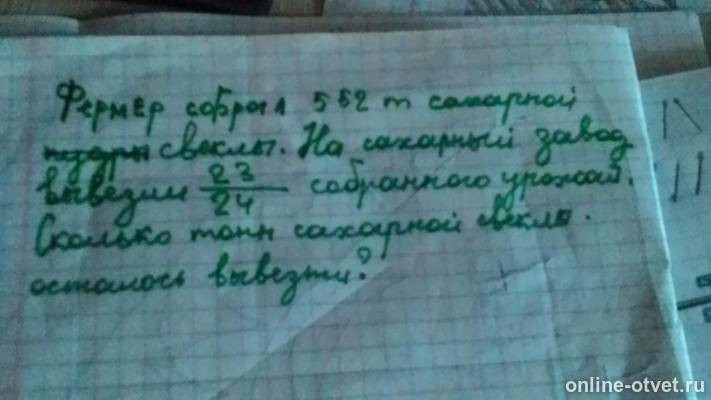 Фермер собрал 552 т сахарной
свеклы. На сахарный завод
вывезли 23/24 собранного урожай.
Сколько тонн сахарной свеклы.
осталось вывезти?
online-otvet.ru